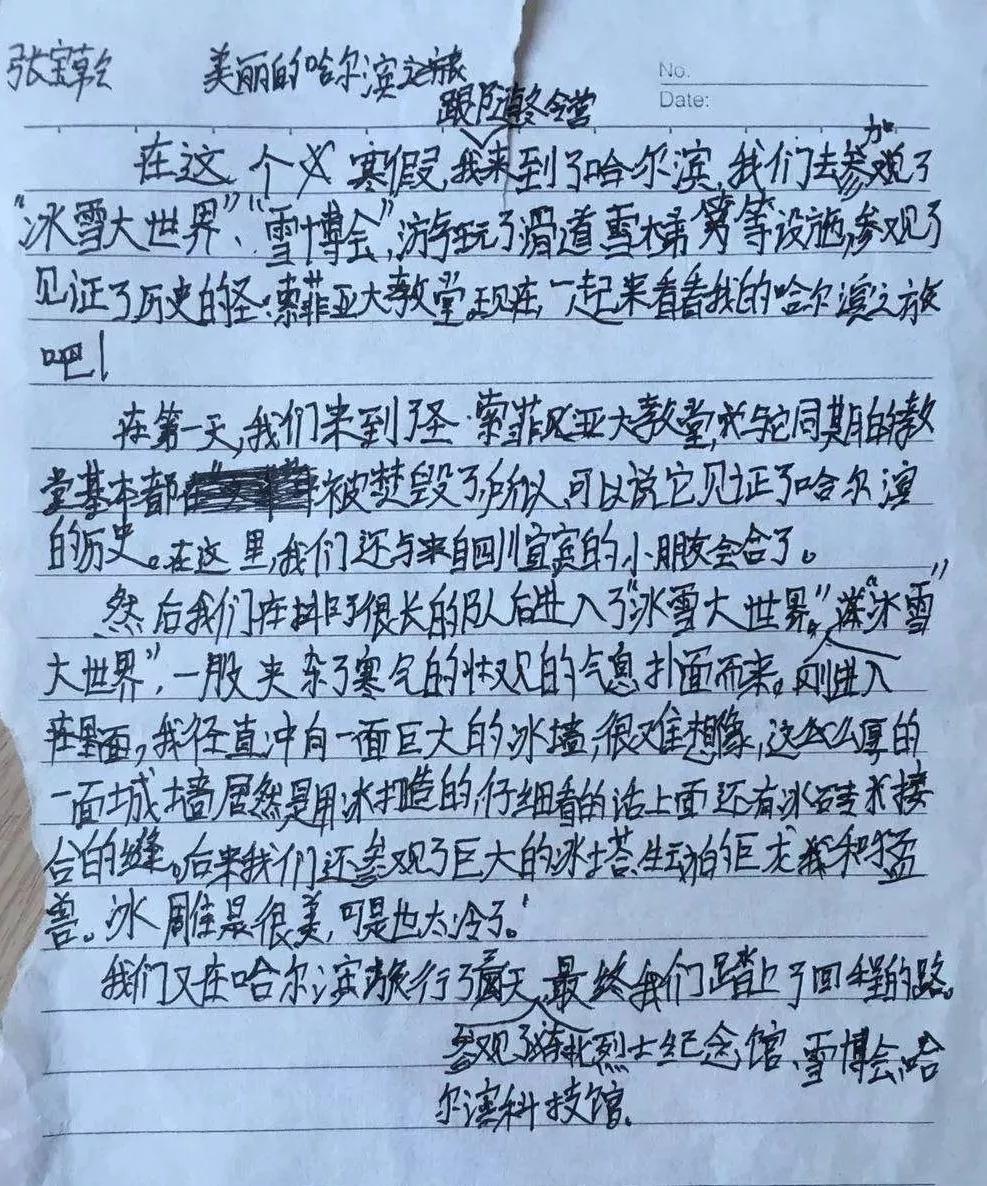 张宝乾 美丽的哈尔滨之旅
No.
Date:
跟随冬令营
在这个寒假,我来到了哈尔滨,我们去参加观了
“冰雪大世界”、“雪博会”,游玩了滑道雪橇等设施,参观了
见证了历史的圣·索菲亚大教堂,现在,一起来看看我的哈尔滨之旅
吧!
在第一天,我们来到了圣·索菲亚大教堂,与它同期的教
堂基本都被焚毁了,所以,可以说它见证了哈尔滨
的历史。在这里,我们还与来自四川宜宾的小朋友会合了。
然后我们在排了很长的队后进入了“冰雪大世界”,“冰雪
大世界”,一股夹杂了寒气的壮观的气息扑面而来。刚进入
里面,我径直冲向一面巨大的冰墙,很难想像,这么厚的
一面城墙居然是用冰打造的,仔细看的话上面还有冰砖接
合的缝。后来我们还参观了巨大的冰塔,生动的巨龙和猛
兽。冰雕是很美,可是也太冷了!
我们又在哈尔滨旅行了几天,最终我们踏上了回程的路。
参观了东北烈士纪念馆、雪博会、哈
尔滨科技馆。